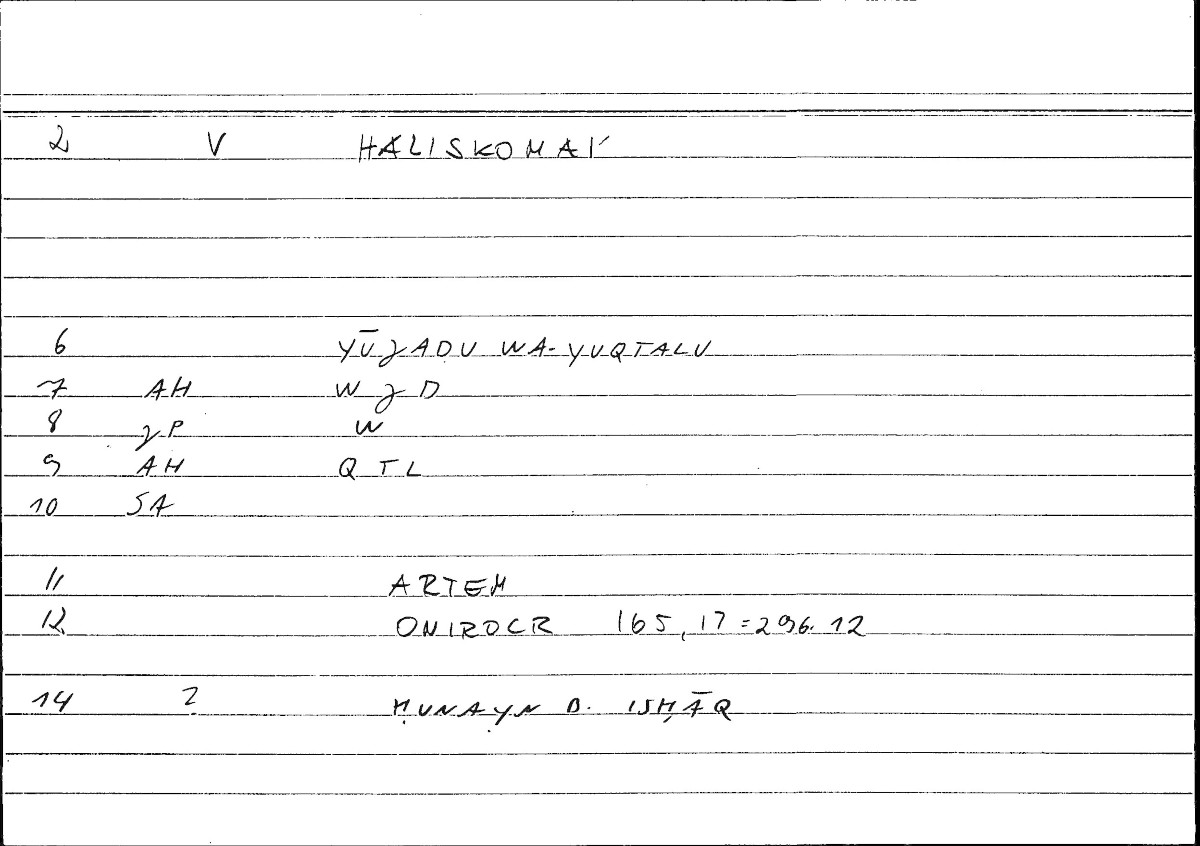 2 V HALISKOMAI
6 YŪǧADU WA-YUQTALU
7 AH W ǧ D
8 ǧP W
9 AH QTL
10 SA
11 ARTEM
12 ONIROCR 165,17=296.12
14 2 ḤUNAYN B. ISḤĀQ